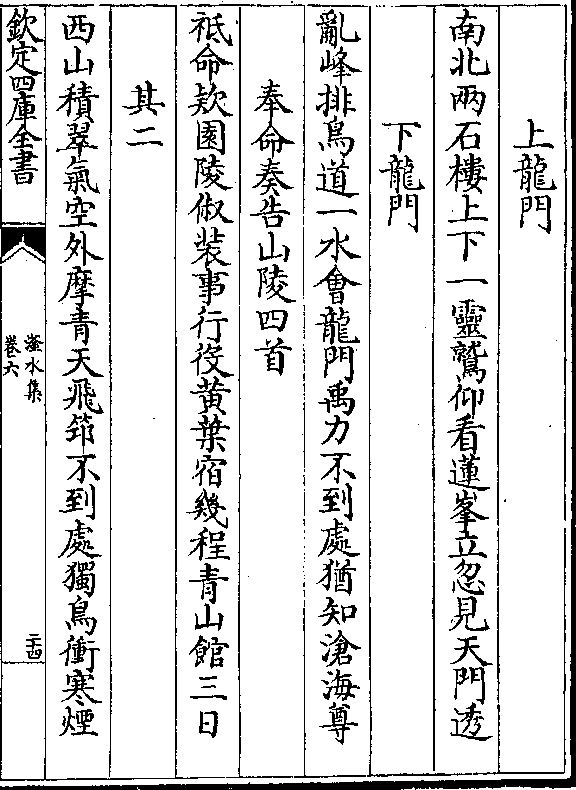 上龍門
南北兩石樓上下一靈鷲仰看蓮峯立忽見天門透
下龍門
亂峰排鳥道一水會龍門禹力不到處猶知滄海尊
奉命奏告山陵四首
祗命欵園陵俶裝事行役黄葉宿幾程青山館三日
其二
西山積翠氣空外摩青天飛笻不到處獨鳥衝寒煙
欽定四庫全書
滏水集
卷六
二十四